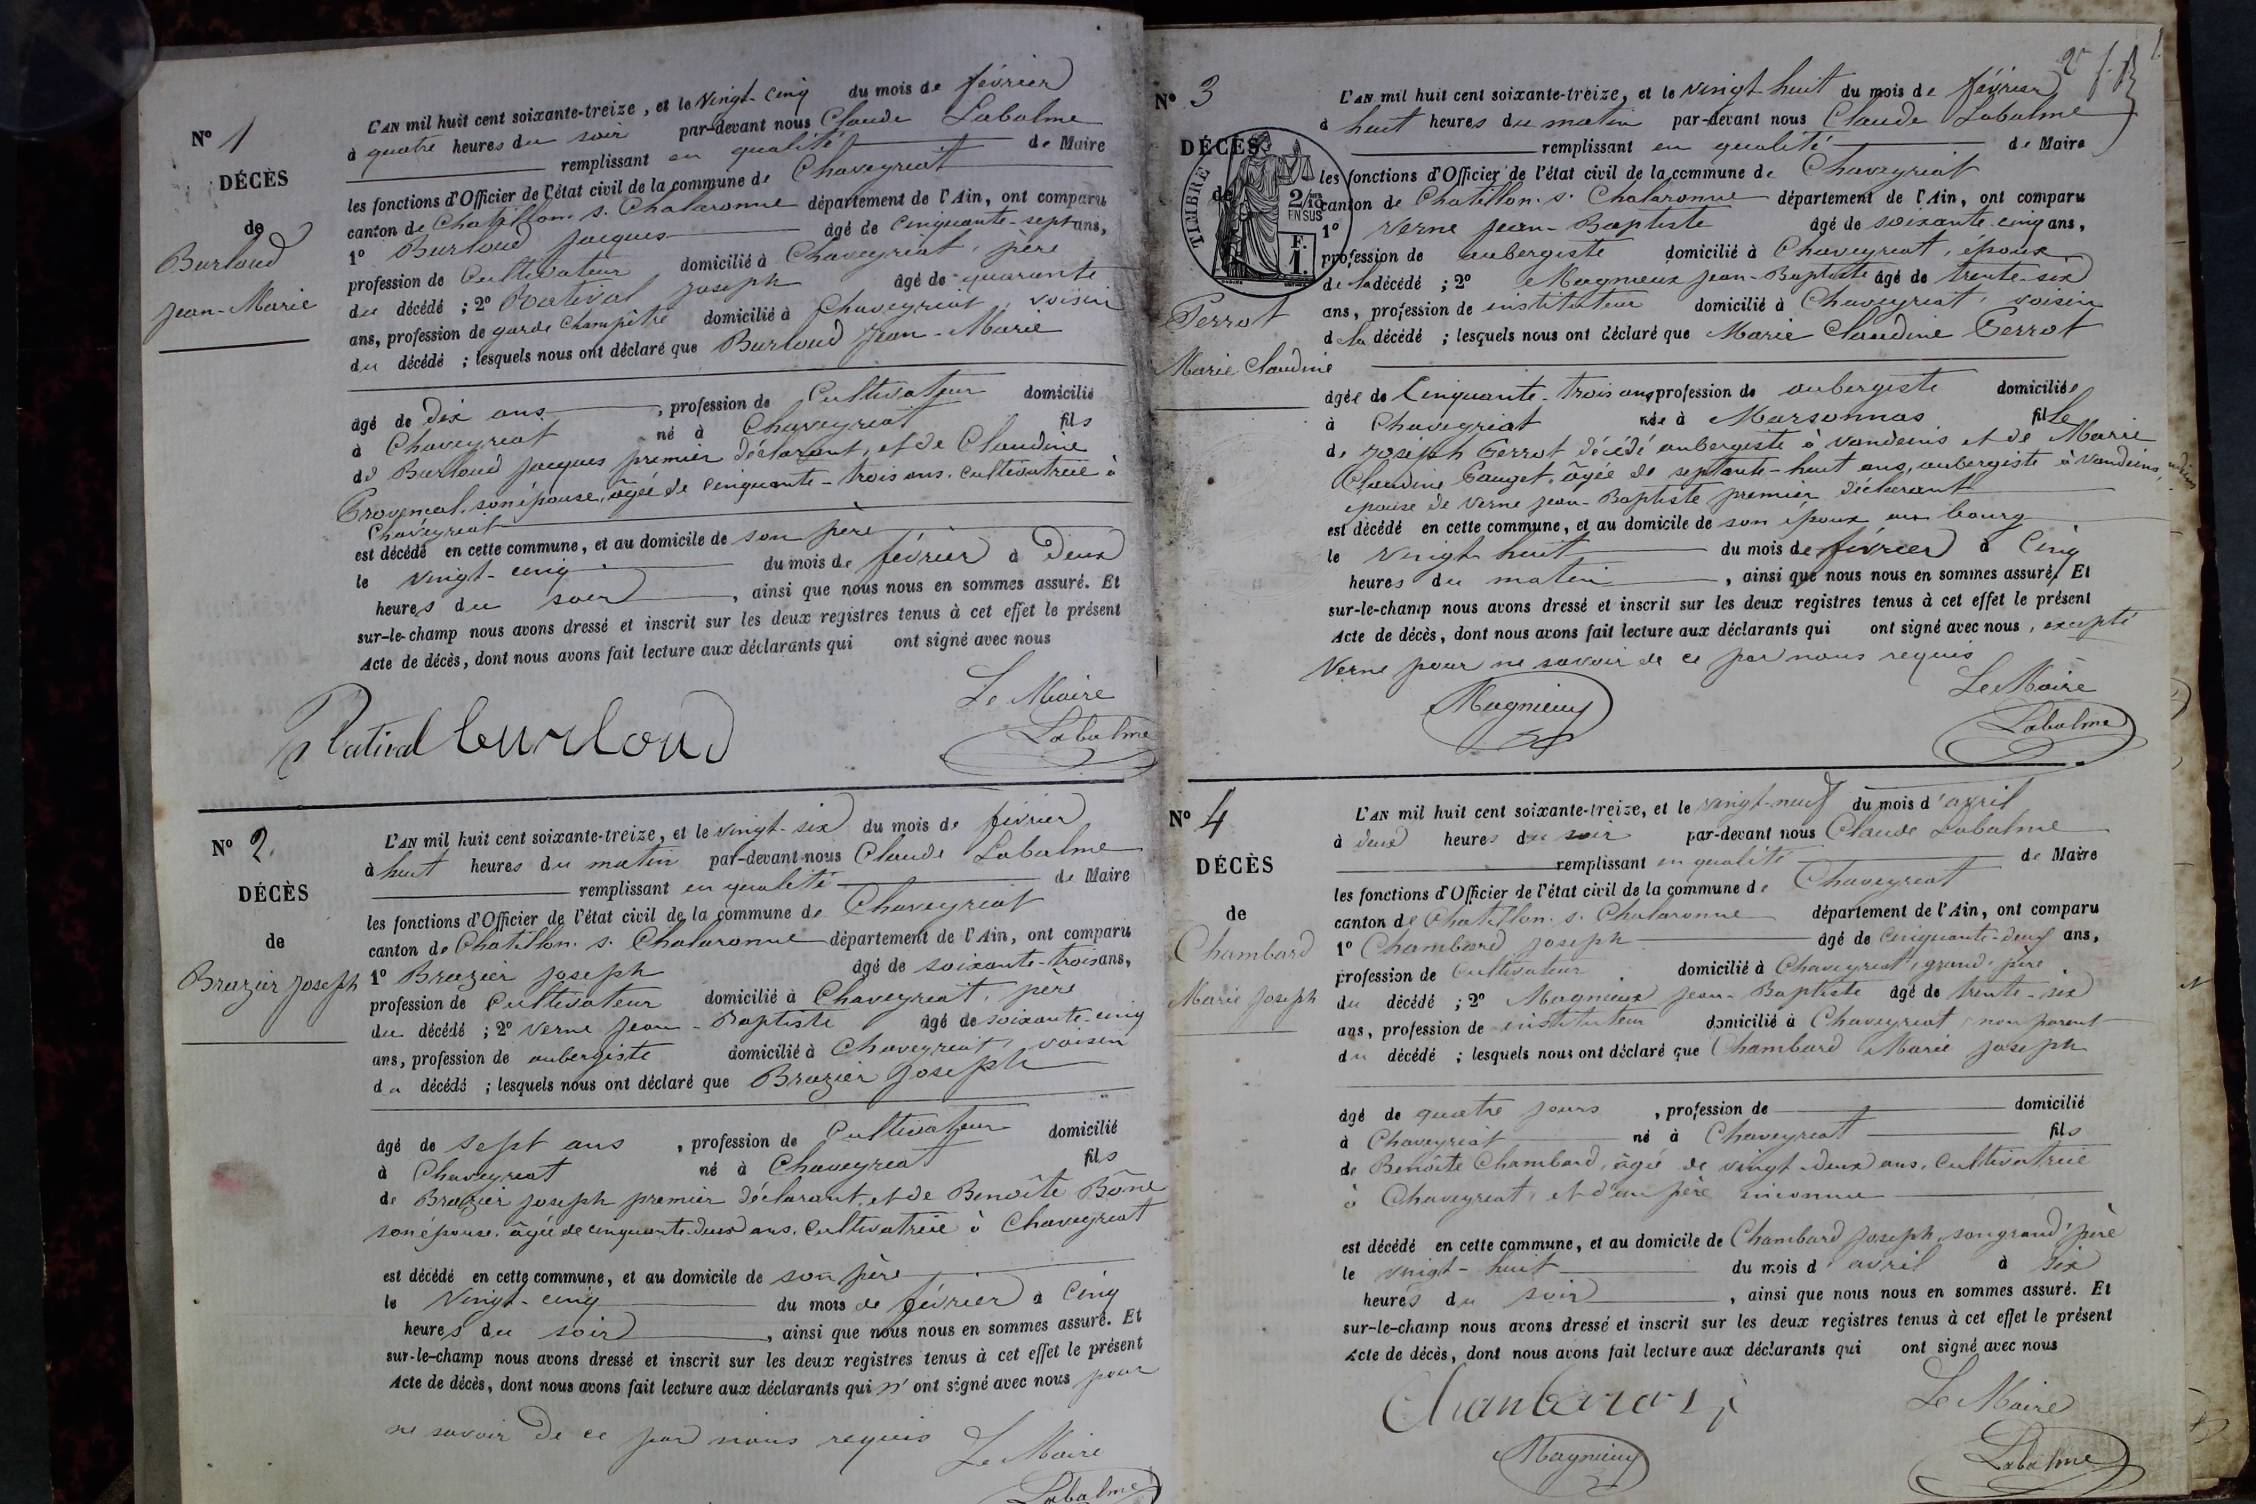 N° 1
DÉCÈS
de
Burloud
Jean-Marie
L'AN mil huit cent soixante-treize, et le vingt-cinq du mois de février
à quatre heures du soir par-devant nous Claude Labalme
remplissant en qualité de Maire
les fonctions d'Officier de l'état civil de la commune de Chaveyriat
canton de Chatillon-s-Chalaronne département de l'Ain, ont comparu
1° Burloud Jacques âgé de cinquante-sept ans,
profession de Cultivateur domicilié à Chaveyriat, père
du décédé ; 2° Joseph âgé de quarante
ans, profession de garde champêtre domicilié à Chaveyriat, voisin
du décédé ; lesquels nous ont déclaré que Burloud Jean-Marie
âgé de dix ans, profession de Cultivateur domicilié
à Chaveyriat né à Chaveyriat fils
de Burloud Jacques premier déclarant, et de Claudine
Provencal son épouse, âgée de cinquante-trois ans, cultivatrice à
Chaveyriat
est décédé en cette commune, et au domicile de son père
le vingt-cinq du mois de février à deux
heures du soir, ainsi que nous nous en sommes assuré. Et
sur-le-champ nous avons dressé et inscrit sur les deux registres tenus à cet effet le présent
Acte de décès, dont nous avons fait lecture aux déclarants qui ont signé avec nous
Le Maire
burloud
Labalme
N° 2.
DÉCÈS
de
Brazier Joseph
L'AN mil huit cent soixante-treize, et le vingt-six du mois de février
à huit heures du matin par-devant nous Claude Labalme
remplissant en qualité de Maire
les fonctions d'Officier de l'état civil de la commune de Chaveyriat
canton de Chatillon-s-Chalaronne département de l'Ain, ont comparu
1° Brazier Joseph âgé de soixante-trois ans,
profession de Cultivateur domicilié à Chaveyriat, père
du décédé ; 2° Verne Jean-Baptiste âgé de soixante-cinq
ans, profession de aubergiste domicilié à Chaveyriat, voisin
du décédé ; lesquels nous ont déclaré que Brazier Joseph
âgé de sept ans, profession de Cultivateur domicilié
à Chaveyriat né à Chaveyriat fils
de Brazier Joseph premier déclarant, et de Benoîte Bône
son épouse, âgée de cinquante-deux ans, cultivatrice à Chaveyriat
est décédé en cette commune, et au domicile de son père
le vingt-cinq du mois de février à cinq
heures du soir, ainsi que nous nous en sommes assuré. Et
sur-le-champ nous avons dressé et inscrit sur les deux registres tenus à cet effet le présent
Acte de décès, dont nous avons fait lecture aux déclarants qui n'ont signé avec nous pour
ne savoir de ce par nous requis
Le Maire
Labalme
N° 3
DÉCÈS
de
TIMBRE
2/10 EN SUS
F. 1.
Perrot
Marie Claudine
L'AN mil huit cent soixante-treize, et le vingt-huit du mois de février
à huit heures du matin par-devant nous Claude Labalme
remplissant en qualité de Maire
les fonctions d'Officier de l'état civil de la commune de Chaveyriat
canton de Chatillon-s-Chalaronne département de l'Ain, ont comparu
1° Verne Jean-Baptiste âgé de soixante-cinq ans,
profession de aubergiste domicilié à Chaveyriat, époux
de la décédé ; 2° Magnieux Jean-Baptiste âgé de trente-six
ans, profession de instituteur domicilié à Chaveyriat, voisin
de la décédé ; lesquels nous ont déclaré que Marie Claudine Perrot
âgée de cinquante-trois ans profession de aubergiste domiciliée
à Chaveyriat née à Marsonnas fille
de Joseph Perrot décédé aubergiste à Vandeins et de Marie
Claudine Pauget, âgée de septante-huit ans, aubergiste à Vandeins,
épouse de Verne Jean-Baptiste premier déclarant
est décédé en cette commune, et au domicile de son époux au bourg
le vingt-huit du mois de février à cinq
heures du matin, ainsi que nous nous en sommes assuré. Et
sur-le-champ nous avons dressé et inscrit sur les deux registres tenus à cet effet le présent
Acte de décès, dont nous avons fait lecture aux déclarants qui ont signé avec nous, excepté
Verne pour ne savoir de ce par nous requis
Le Maire
Magnieux
Labalme
N° 4
DÉCÈS
de
Chambard
Marie Joseph
L'AN mil huit cent soixante-treize, et le vingt-neuf du mois d'avril
à deux heures du soir par-devant nous Claude Labalme
remplissant en qualité de Maire
les fonctions d'Officier de l'état civil de la commune de Chaveyriat
canton de Chatillon-s-Chalaronne département de l'Ain, ont comparu
1° Chambard Joseph âgé de cinquante-deux ans,
profession de Cultivateur domicilié à Chaveyriat, grand-père
du décédé ; 2° Magnieux Jean-Baptiste âgé de trente-six
ans, profession de instituteur domicilié à Chaveyriat, non parent
du décédé ; lesquels nous ont déclaré que Chambard Marie Joseph
âgé de quatre jours, profession de domicilié
à Chaveyriat né à Chaveyriat fils
de Benoîte Chambard, âgée de vingt-deux ans, cultivatrice
à Chaveyriat, et d'un père inconnu
est décédé en cette commune, et au domicile de Chambard Joseph, son grand'père
le vingt-huit du mois d'avril à six
heures du soir, ainsi que nous nous en sommes assuré. Et
sur-le-champ nous avons dressé et inscrit sur les deux registres tenus à cet effet le présent
Acte de décès, dont nous avons fait lecture aux déclarants qui ont signé avec nous
Le Maire
Magnieux
Labalme